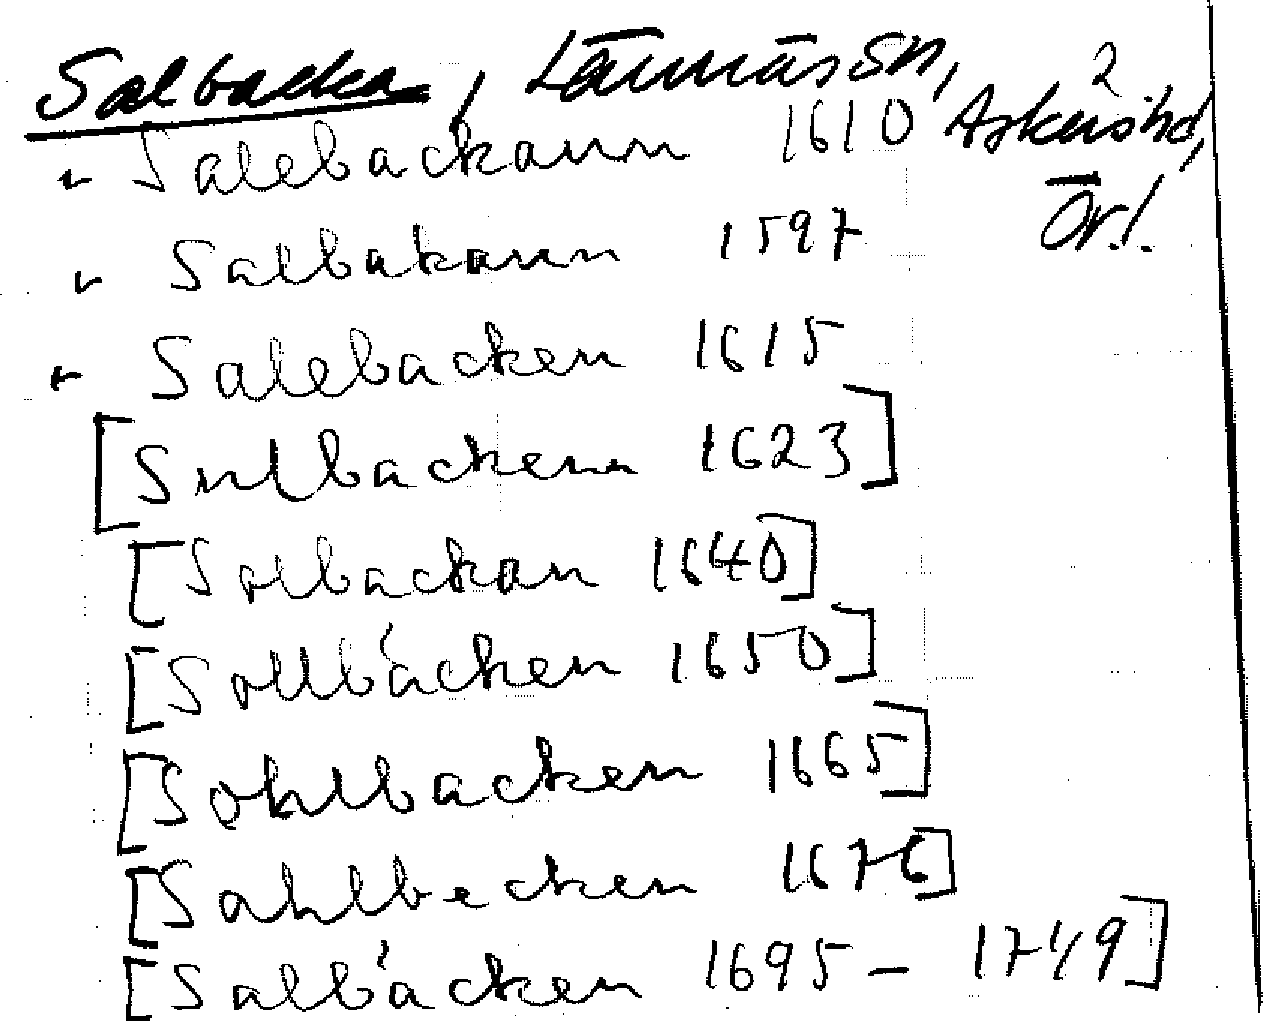 Salbacka, Lännäs sn, 2
Salebackann 1610 Askers hd,
Salbakann 1597 Ör.l.
Salebacken 1615
[Sulbackenn 1623]
[Solbackan 1640]
[Sollbácken 1650]
[Sohlbacken 1665]
[Sahlbecken 1676]
[Salbácken 1695 – 1749]